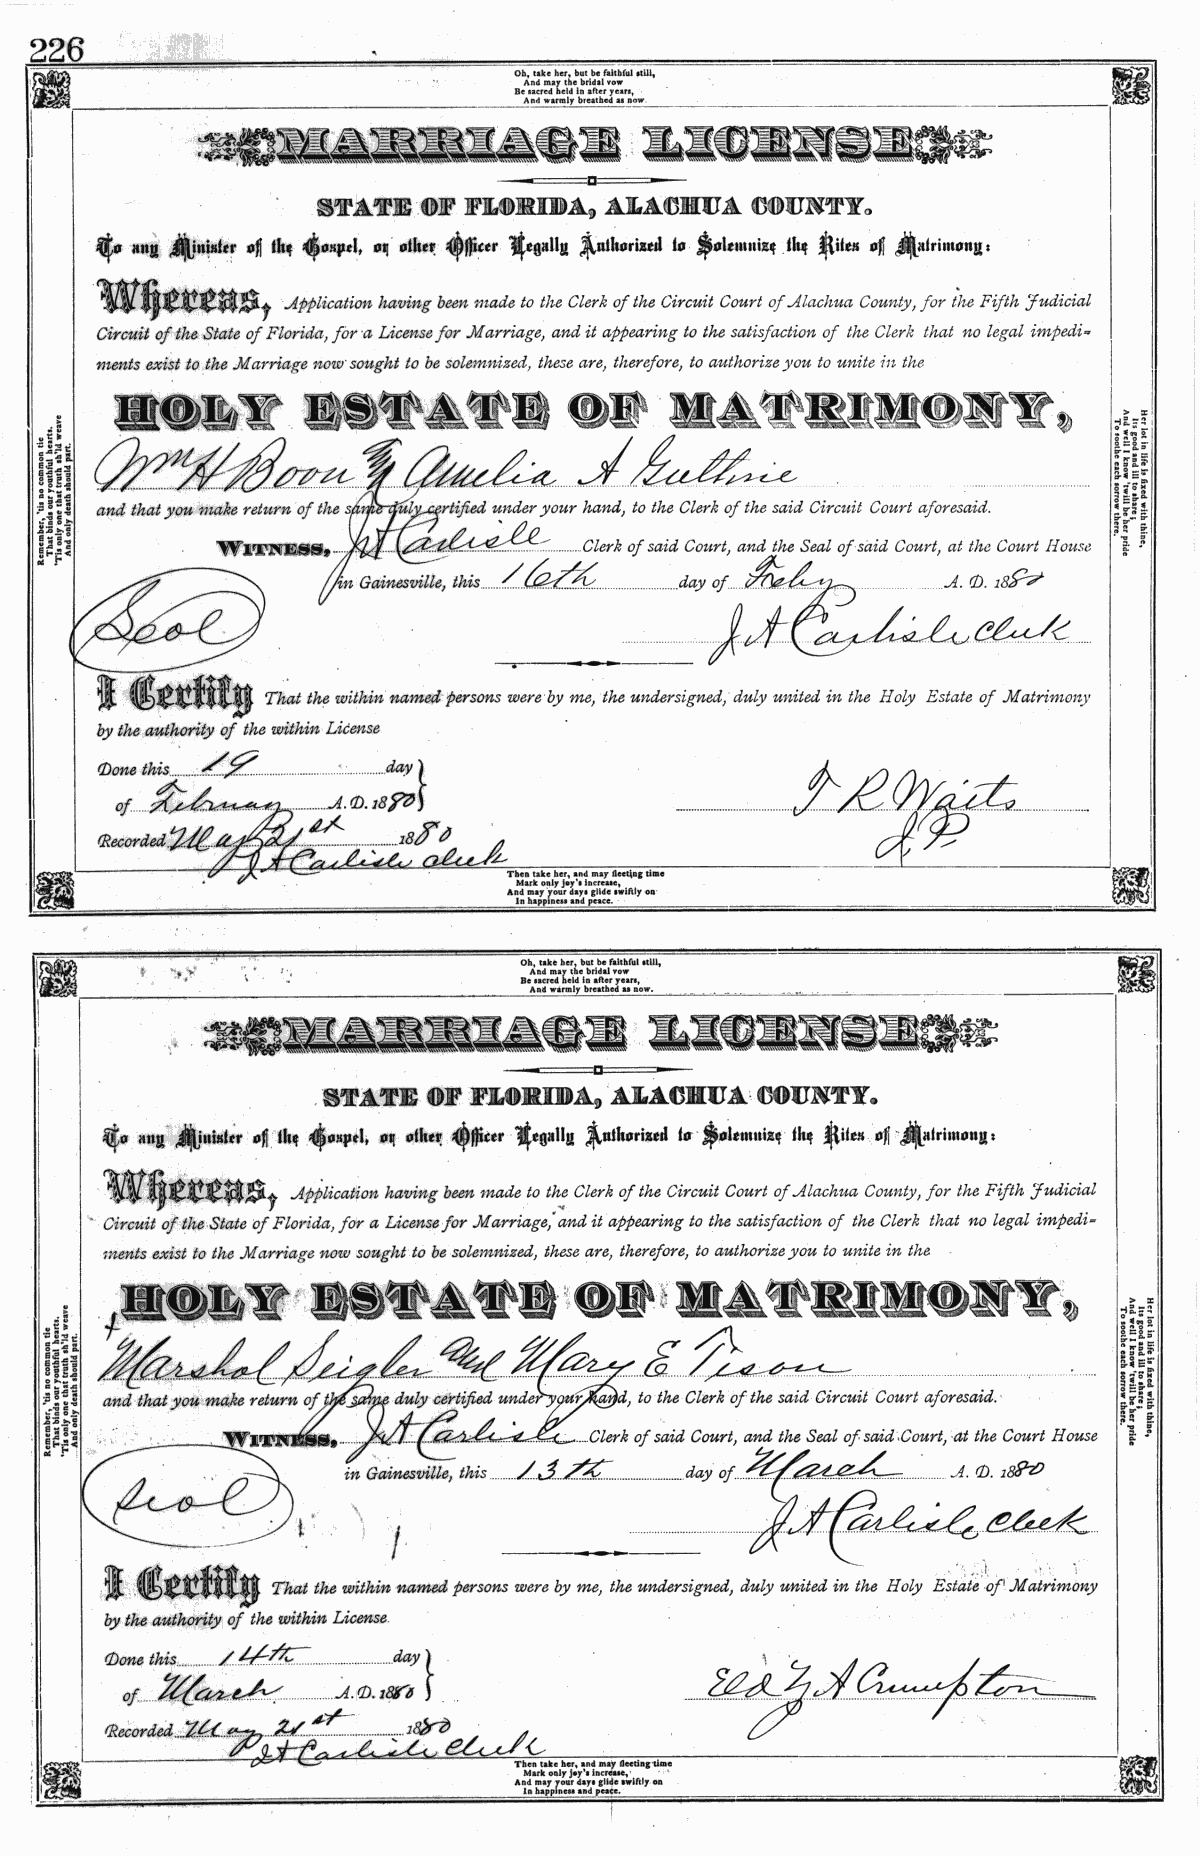 226
Oh, take her, but be faithful still,
And may the bridal vow
Be sacred held in after years,
And warmly breathed as now.
MARRIAGE LICENSE
STATE OF FLORIDA, ALACHUA COUNTY.
To any Minister of the Gospel, or other Officer Legally Authorized to Solemnize the Rites of Matrimony:
Whereas, Application having been made to the Clerk of the Circuit Court of Alachua County, for the Fifth Judicial
Circuit of the State of Florida, for a License for Marriage, and it appearing to the satisfaction of the Clerk that no legal impedi=
ments exist to the Marriage now sought to be solemnized, these are, therefore, to authorize you to unite in the
HOLY ESTATE OF MATRIMONY,
Wm H Boon & Amelia A Guthrie
and that you make return of the same duly certified under your hand, to the Clerk of the said Circuit Court aforesaid.
WITNESS, J A Carlisle Clerk of said Court, and the Seal of said Court, at the Court House
in Gainesville, this 16th day of Feby A. D. 1880
Seal
J A Carlisle Clerk
I Certify That the within named persons were by me, the undersigned, duly united in the Holy Estate of Matrimony
by the authority of the within License
Done this 19 day
of February A.D. 1880
T R Waits
J.P.
Recorded May 21st 1880
J A Carlisle Clerk
Then take her, and may fleeting time
Mark only joy's increase,
And may your days glide swiftly on
In happiness and peace.
Remember, 'tis no common tie
That binds our youthful hearts,
'Tis only one that truth sh'ld weave
And only death should part.
Her lot in life is fixed with thine,
Its good and ill to share;
And well I know 'twill be her pride
To soothe each sorrow there.
Oh, take her, but be faithful still,
And may the bridal vow
Be sacred held in after years,
And warmly breathed as now.
MARRIAGE LICENSE
STATE OF FLORIDA, ALACHUA COUNTY.
To any Minister of the Gospel, or other Officer Legally Authorized to Solemnize the Rites of Matrimony:
Whereas, Application having been made to the Clerk of the Circuit Court of Alachua County, for the Fifth Judicial
Circuit of the State of Florida, for a License for Marriage, and it appearing to the satisfaction of the Clerk that no legal impedi=
ments exist to the Marriage now sought to be solemnized, these are, therefore, to authorize you to unite in the
HOLY ESTATE OF MATRIMONY,
Marshal Seigler and Mary E Tison
and that you make return of the same duly certified under your hand, to the Clerk of the said Circuit Court aforesaid.
WITNESS, J A Carlisle Clerk of said Court, and the Seal of said Court, at the Court House
in Gainesville, this 13th day of March A. D. 1880
Seal
J A Carlisle Clerk
I Certify That the within named persons were by me, the undersigned, duly united in the Holy Estate of Matrimony
by the authority of the within License.
Done this 14th day
of March A.D. 1880
Eld Z A Crumpton
Recorded May 21st 1880
J A Carlisle Clerk
Then take her, and may fleeting time
Mark only joy's increase,
And may your days glide swiftly on
In happiness and peace.
Remember, 'tis no common tie
That binds our youthful hearts.
'Tis only one that truth sh'ld weave
And only death should part.
Her lot in life is fixed with thine,
Its good and ill to share;
And well I know 'twill be her pride
To soothe each sorrow there.